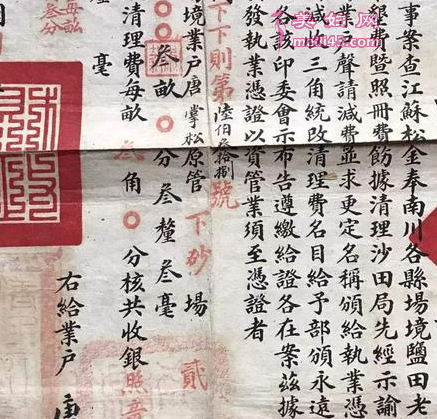 美姐网
mstj443.com
事案查江蘇松金奉南川各縣場境鹽田老
墾費暨照冊費飭據清理沙田局先經示諭
業戶聲請減費並求更定名稱頒給執業憑
減收三角統改清理費名目給予部頒永遠
各該印委會示布告遵繳給證各在案茲據
發執業憑證以資管業須至憑證者
下下則第陸伯叁拾捌號
境業戶唐掌松原管下砂場
叁畝〇分叁釐叁毫 貳
清理費每畝〇叁角〇分核共收銀照章
釐 毫
每畝叁分
右給業戶唐